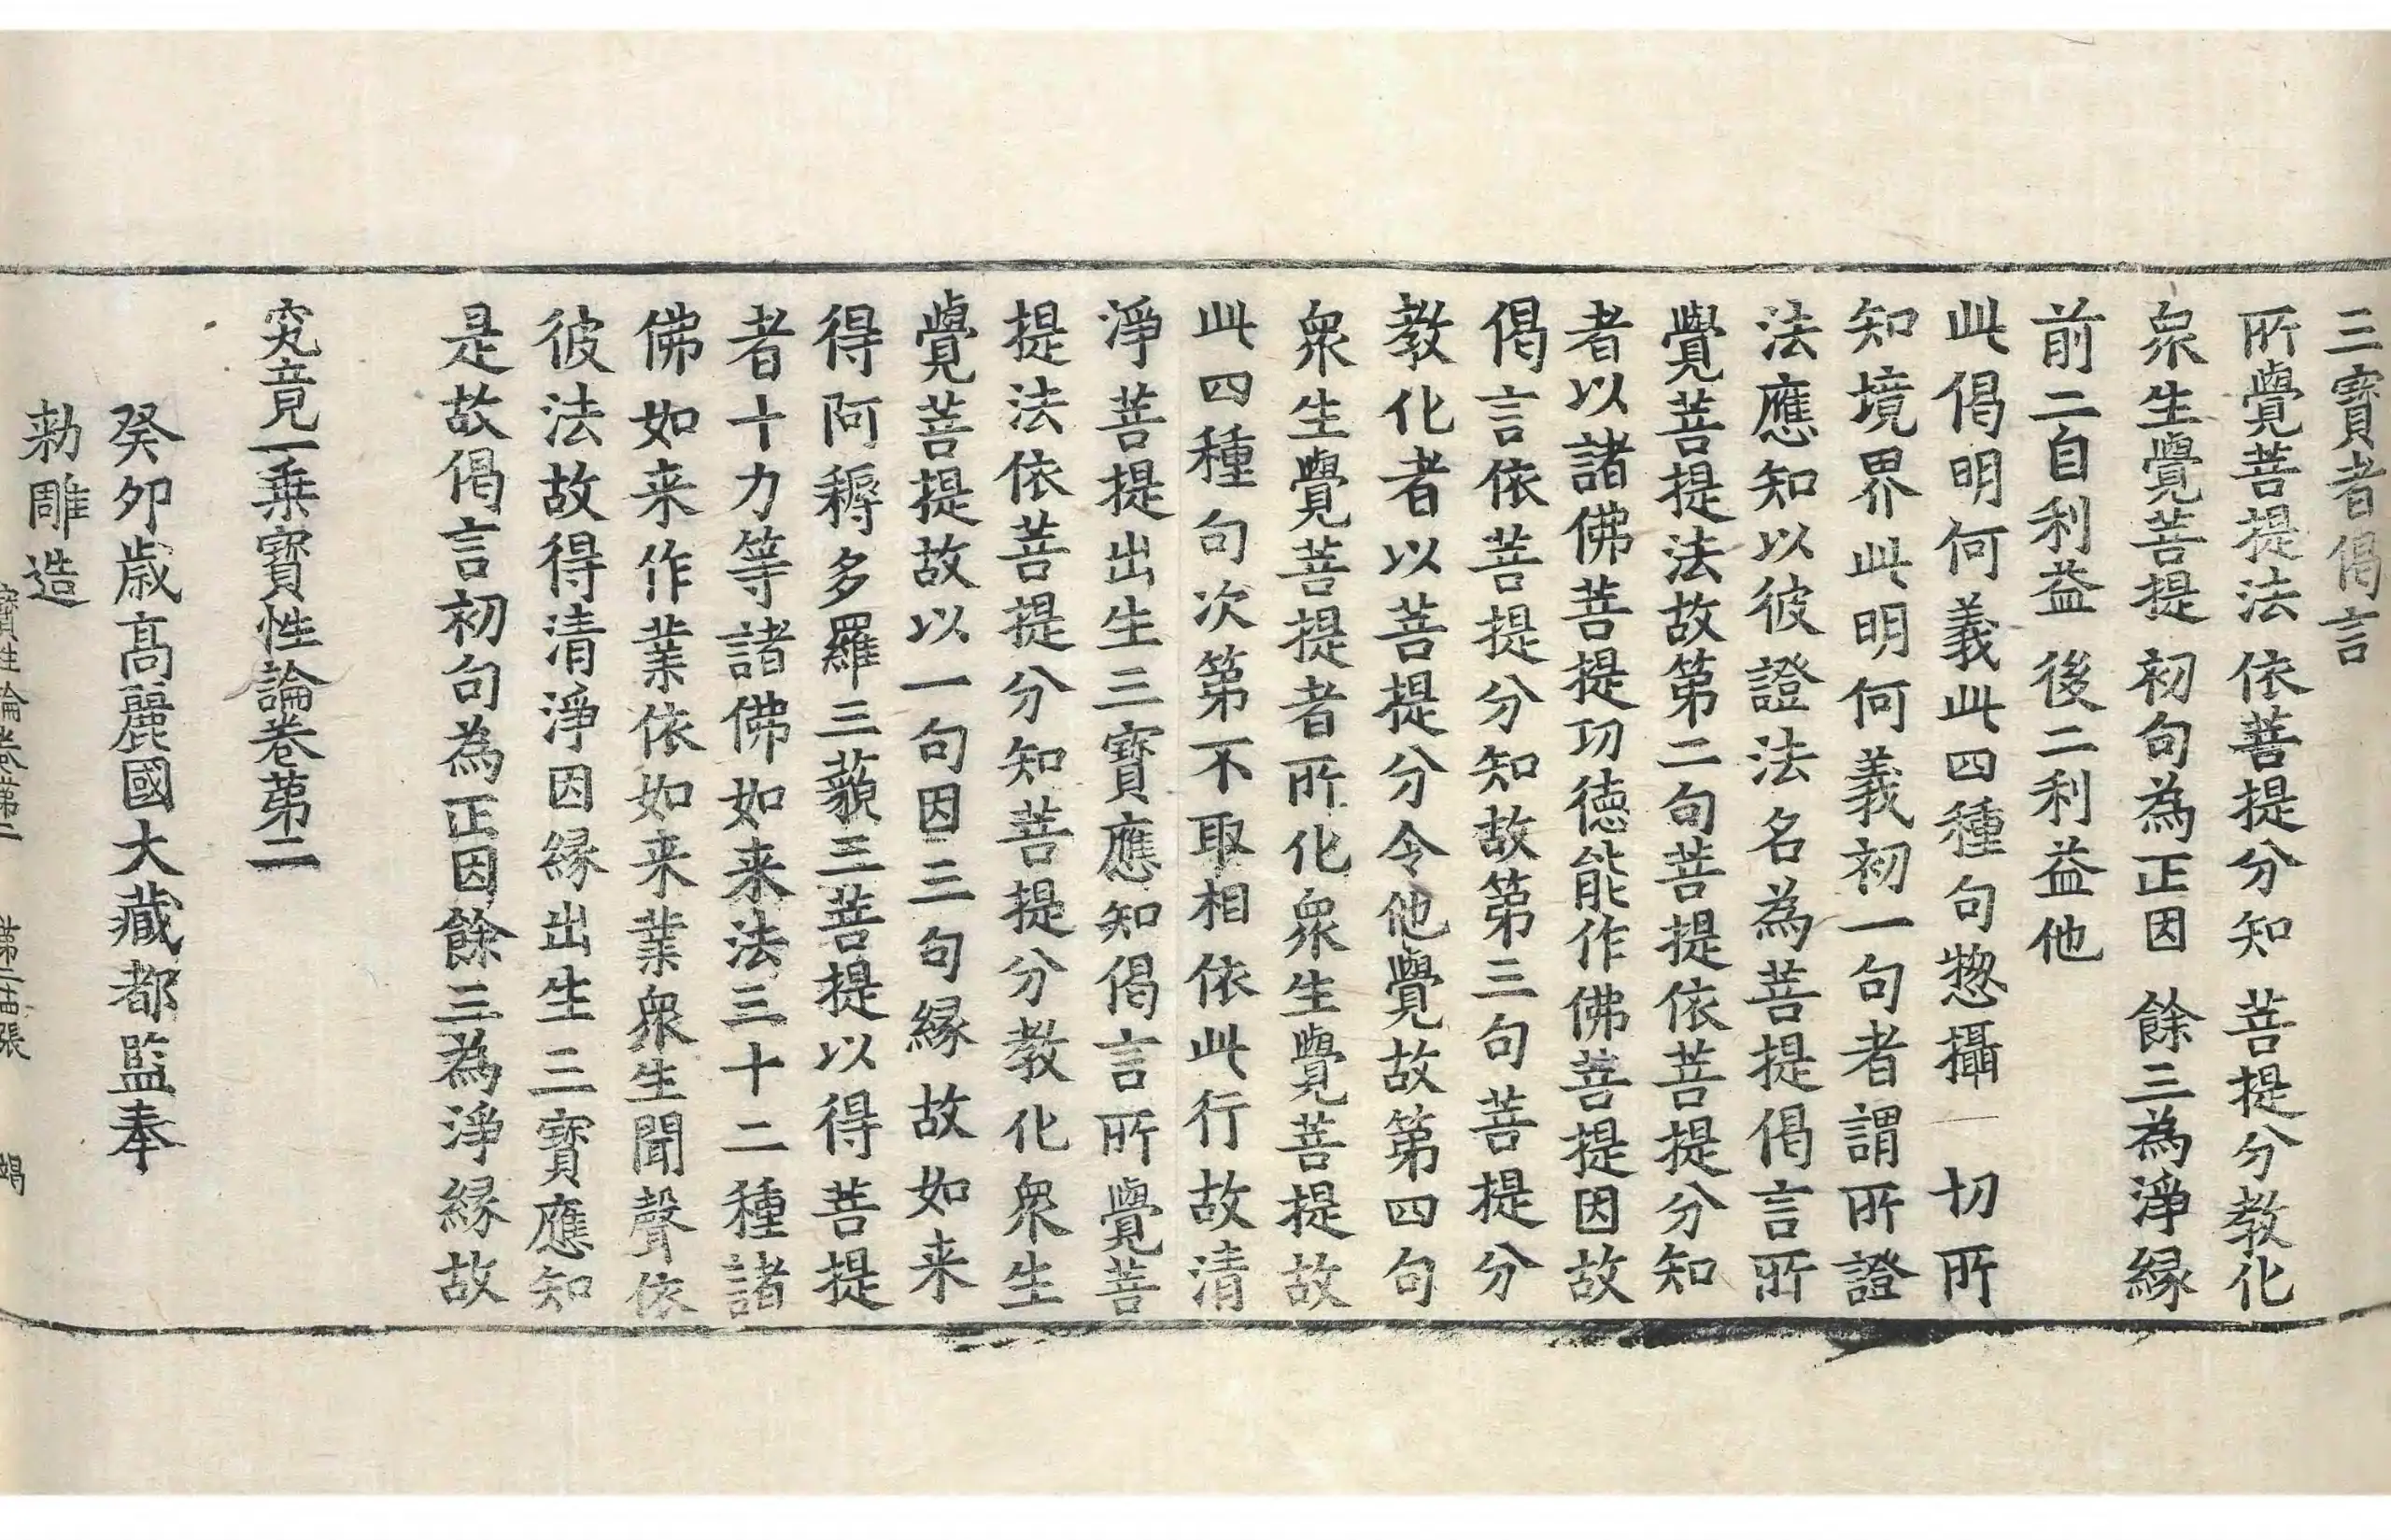 三寶者偈言
所覺菩提法 依菩提分知 菩提分教化
衆生覺菩提 初句為正因 餘三為淨緣
前二自利益 後二利益他
此偈明何義此四種句惣攝一切所
知境界此明何義初一句者謂所證
法應知以彼證法名為菩提偈言所
覺菩提法故第二句菩提依菩提分知
者以諸佛菩提功德能作佛菩提因故
偈言依菩提分知故第三句菩提分
教化者以菩提分令他覺故第四句
衆生覺菩提者所化衆生覺菩提故
此四種句次第不取相依此行故清
淨菩提出生三寶應知偈言所覺菩
提法依菩提分知菩提分教化衆生
覺菩提故以一句因三句緣故如来
得阿耨多羅三藐三菩提以得菩提
者十力等諸佛如来法三十二種諸
佛如来作業依如来業衆生聞聲依
彼法故得清淨因緣出生三寶應知
是故偈言初句為正因餘三為淨緣故
究竟一乗寶性論卷第二
癸卯歲髙麗國大藏都監奉
勅雕造
寶性論卷第二 第二十四張 竭